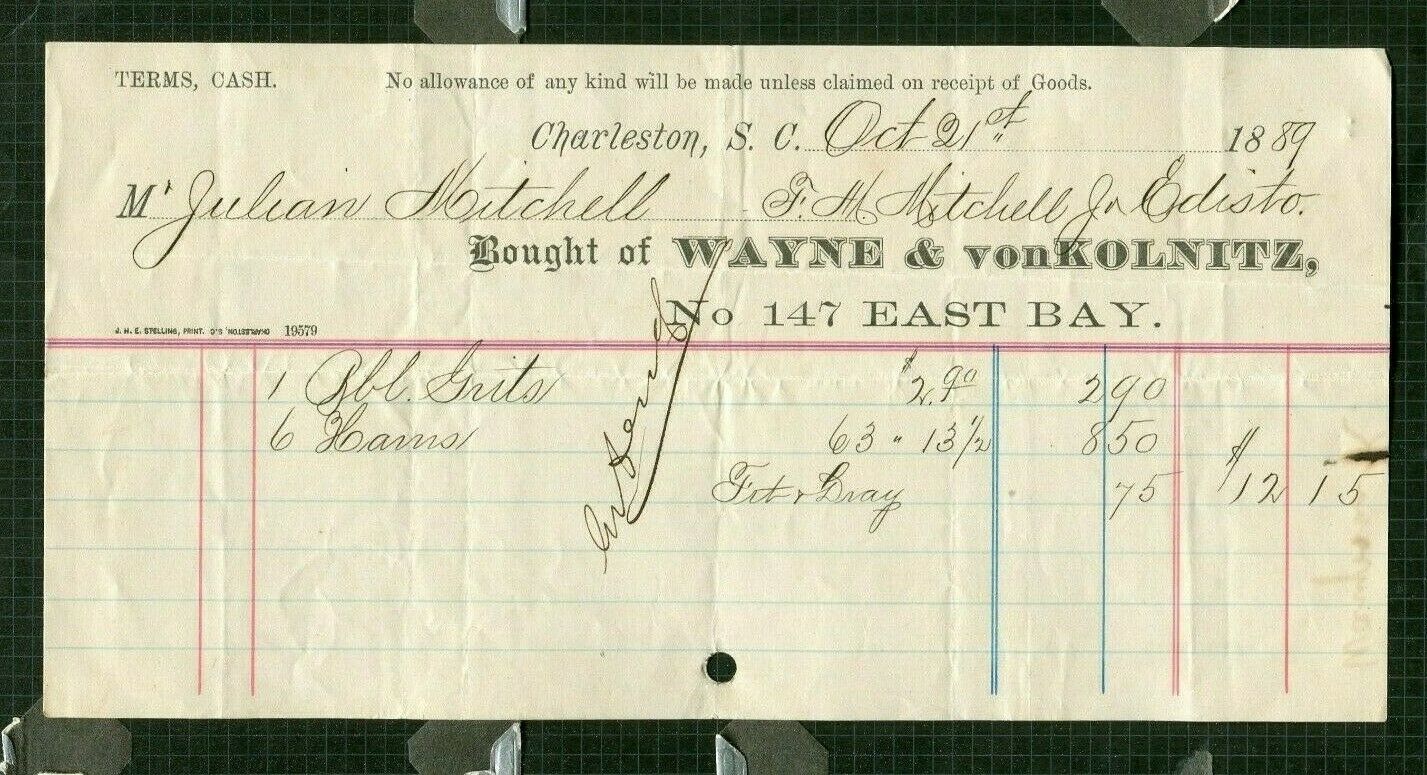 TERMS, CASH. No allowance of any kind will be made unless claimed on receipt of Goods.
Charleston, S. C. Oct 21st 1889
Mr Julian Mitchell F. M. Mitchell Jr Edisto.
Bought of WAYNE & vonKOLNITZ,
No 147 EAST BAY.
J. H. E. STELLING, PRINT. CHARLESTON, S.C. 19579
1 Bbl. Grits $2.90 2 90
6 Hams 63 " 13 1/2 8 50
Frt & Dray 75 $12 15